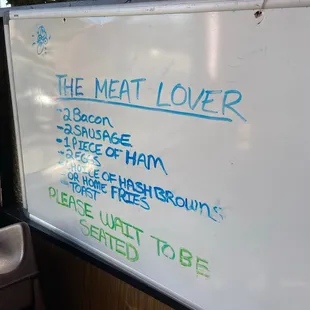 THE MEAT LOVER
-2 Bacon
-2 SAUSAGE
-1 PIECE OF HAM
-2 EGGS
-CHOICE OF HASHBROWNS
OR HOME FRIES
-TOAST
PLEASE WAIT TO BE
SEATED